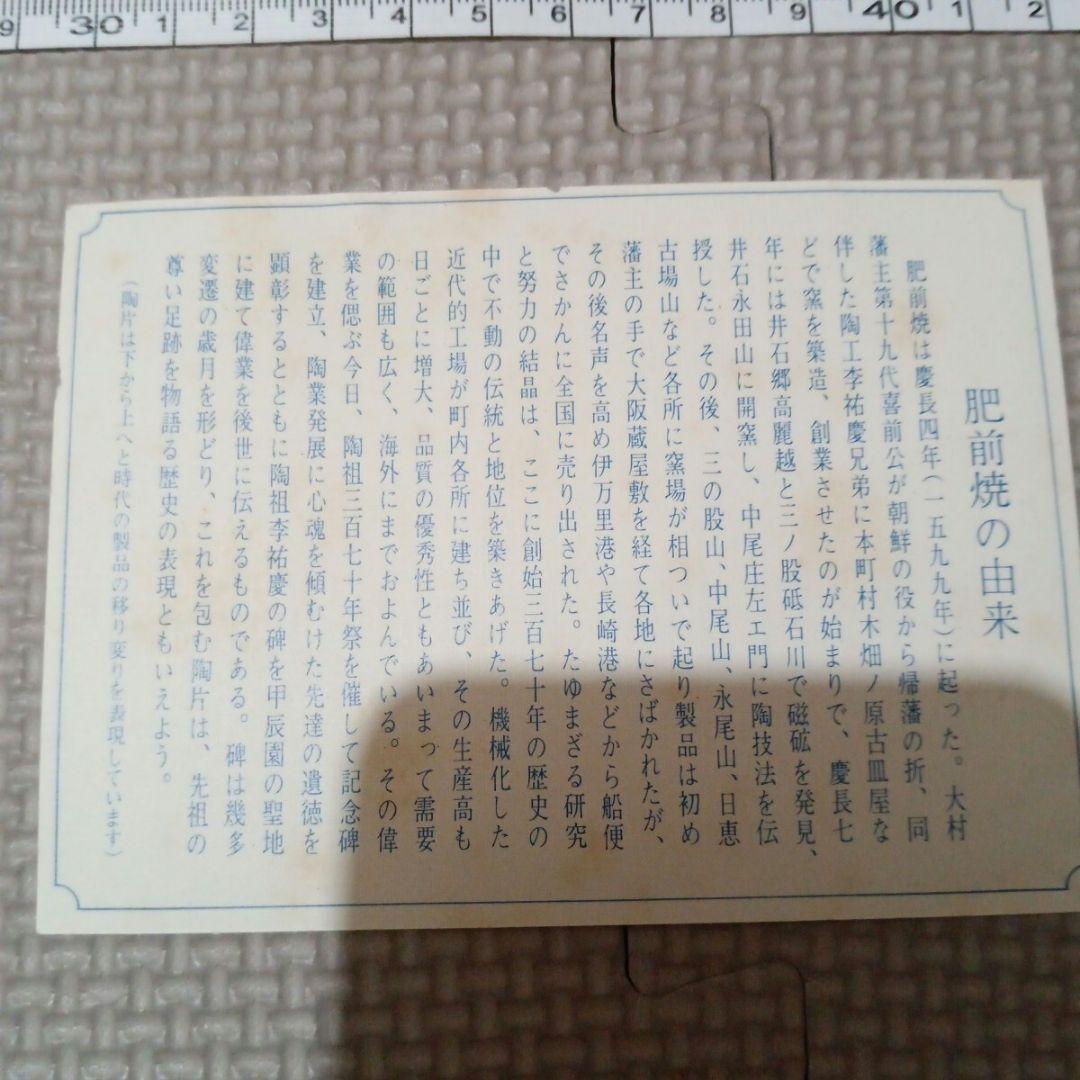 9 30 1 2 3 4 5 6 7 8 9 40 1 2
肥前焼の由来
肥前焼は慶長四年(一五九九年)に起った。大村
藩主第十九代喜前公が朝鮮の役から帰藩の折、同
伴した陶工李祐慶兄弟に本町村木畑ノ原古皿屋な
どで窯を築造、創業させたのが始まりで、慶長七
年には井石郷高麗越と三ノ股砥石川で磁砿を発見、
井石永田山に開窯し、中尾庄左エ門に陶技法を伝
授した。その後、三の股山、中尾山、永尾山、日恵
古場山など各所に窯場が相ついで起り製品は初め
藩主の手で大阪蔵屋敷を経て各地にさばかれたが、
その後名声を高め伊万里港や長崎港などから船便
でさかんに全国に売り出された。たゆまざる研究
と努力の結晶は、ここに創始三百七十年の歴史の
中で不動の伝統と地位を築きあげた。機械化した
近代的工場が町内各所に建ち並び、その生産高も
日ごとに増大、品質の優秀性ともあいまって需要
の範囲も広く、海外にまでおよんでいる。その偉
業を偲ぶ今日、陶祖三百七十年祭を催して記念碑
を建立、陶業発展に心魂を傾むけた先達の遺徳を
顕彰するとともに陶祖李祐慶の碑を甲辰園の聖地
に建て偉業を後世に伝えるものである。碑は幾多
変遷の歳月を形どり、これを包む陶片は、先祖の
尊い足跡を物語る歴史の表現ともいえよう。
(陶片は下から上へと時代の製品の移り変りを表現しています)